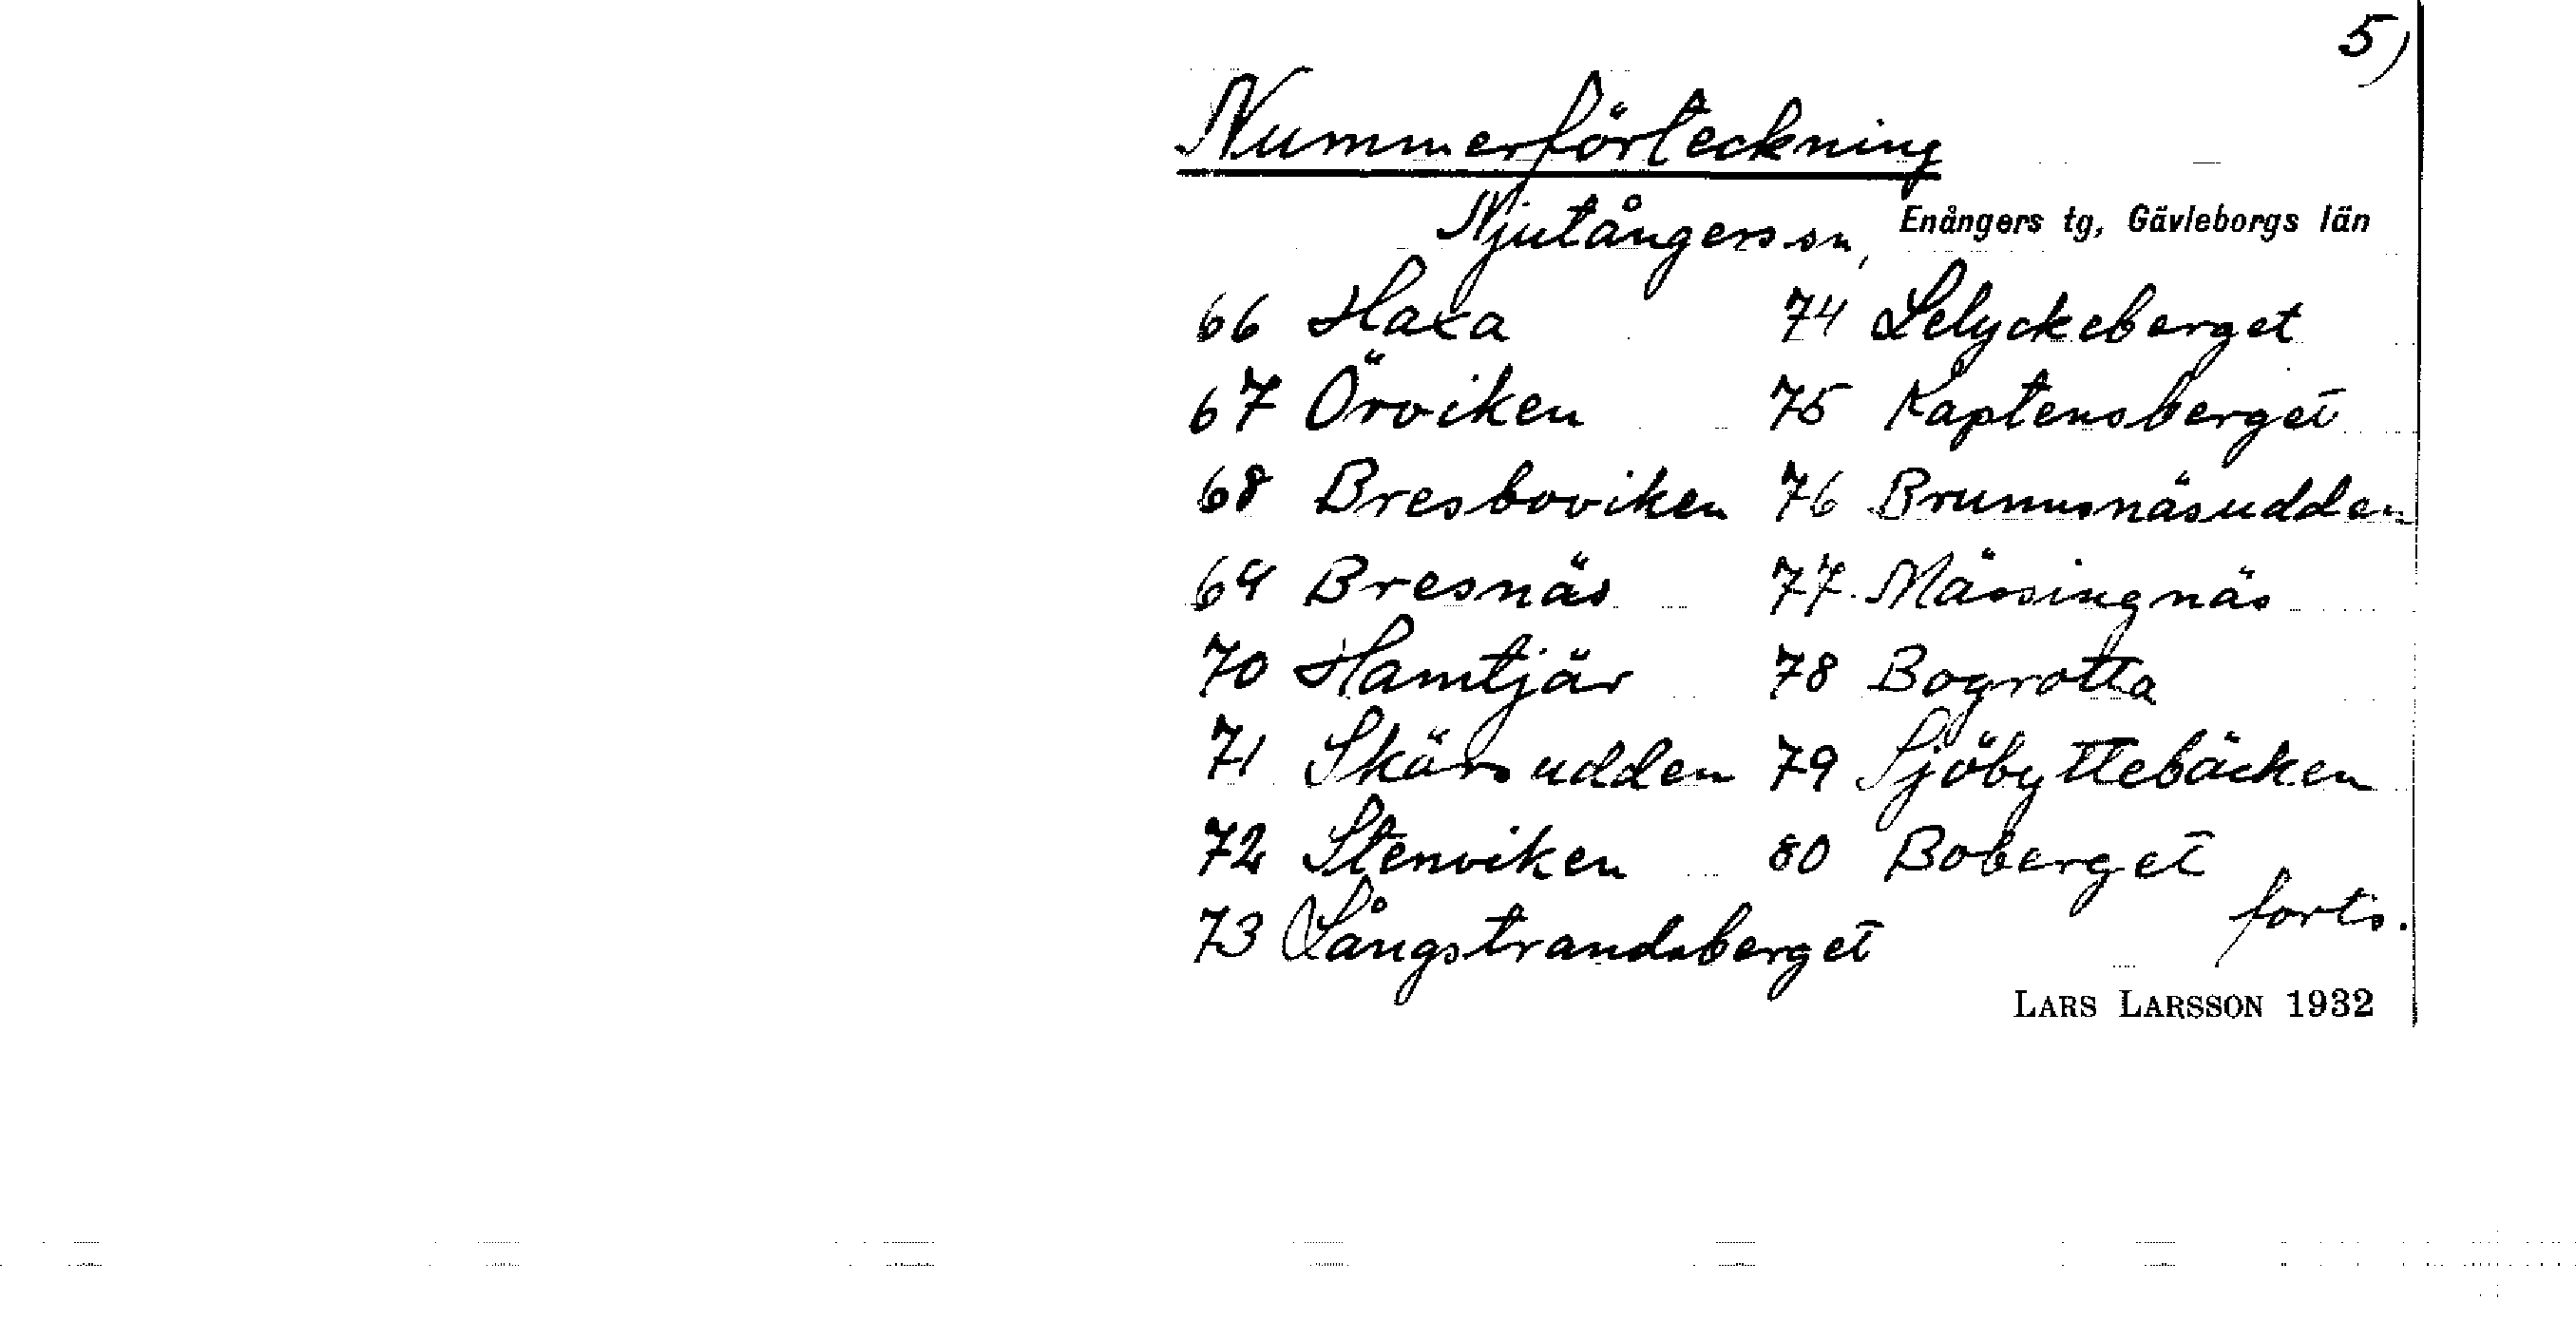 5)
Nummerförteckning
Njutångers sn, Enångers tg, Gävleborgs län
66 Haxa 74 Lelyckeberget
67 Örviken 75 Kaptensberget
68 Bresboviken 76 Brunnsnäsudden
69 Bresnäs 77 Mässingnäs
70 Hamtjär 78 Bogrotta
71 Skärsudden 79 Sjöbyttebäcken
72 Stenviken 80 Boberget
73 Långstrandsberget forts.
LARS LARSSON 1932